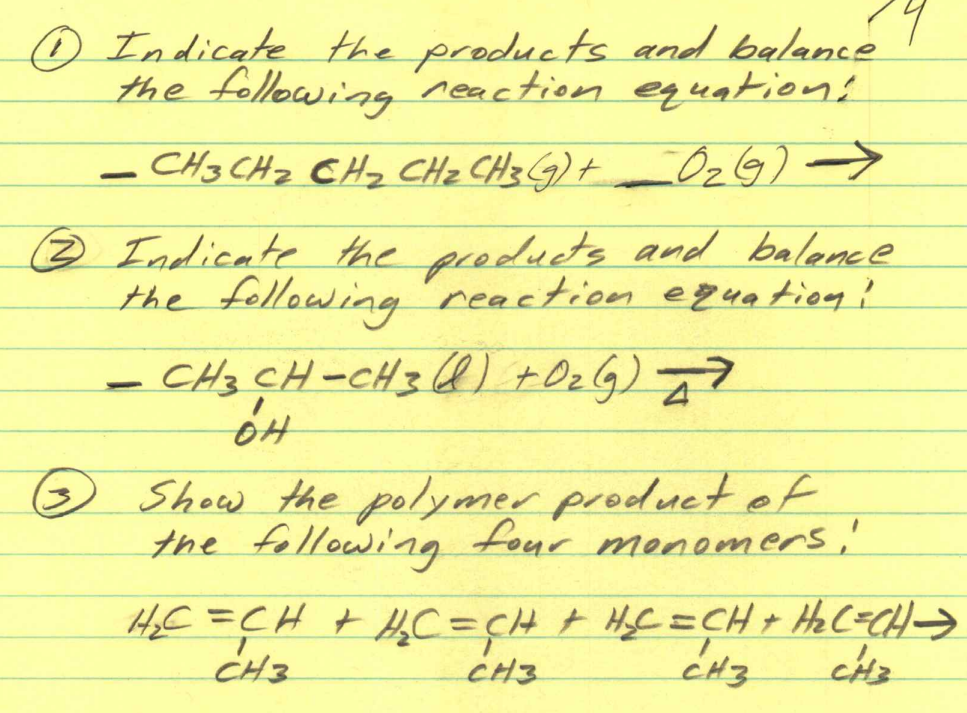 ① Indicate the products and balance
the following reaction equation:
_ CH3CH2 CH2 CH2 CH3(g) + __O2(g) →
② Indicate the products and balance
the following reaction equation:
_ CH3 CH-CH3 (l) + O2(g) →
Δ
OH
③ Show the polymer product of
the following four monomers:
H2C=CH + H2C=CH + H2C=CH + H2C=CH→
CH3 CH3 CH3 CH3